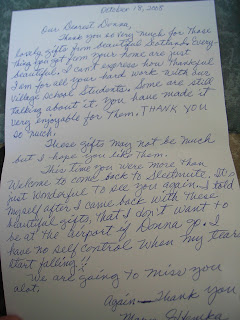 October 18, 2008
Dear Dearest Donna,
Thank you so very much for those
lovely gifts from beautiful Scotland. Every-
thing you got from your home are just
beautiful. I can't express how thankful
I am for all your hard work with our
Village School Students. Some are still
talking about it. You have made it
very enjoyable for them. THANK YOU
so much.
These gifts may not be much
but I hope you like them.
This time you were more than
Welcome to come back to Sleetmute. It's
just wonderful to see you again. I told
myself after I came back with these
beautiful gifts, that I don't want to
be at the airport if Donna go. I
have no self control when my tears
start falling!!
We are going to miss you
alot.
Again - Thank you